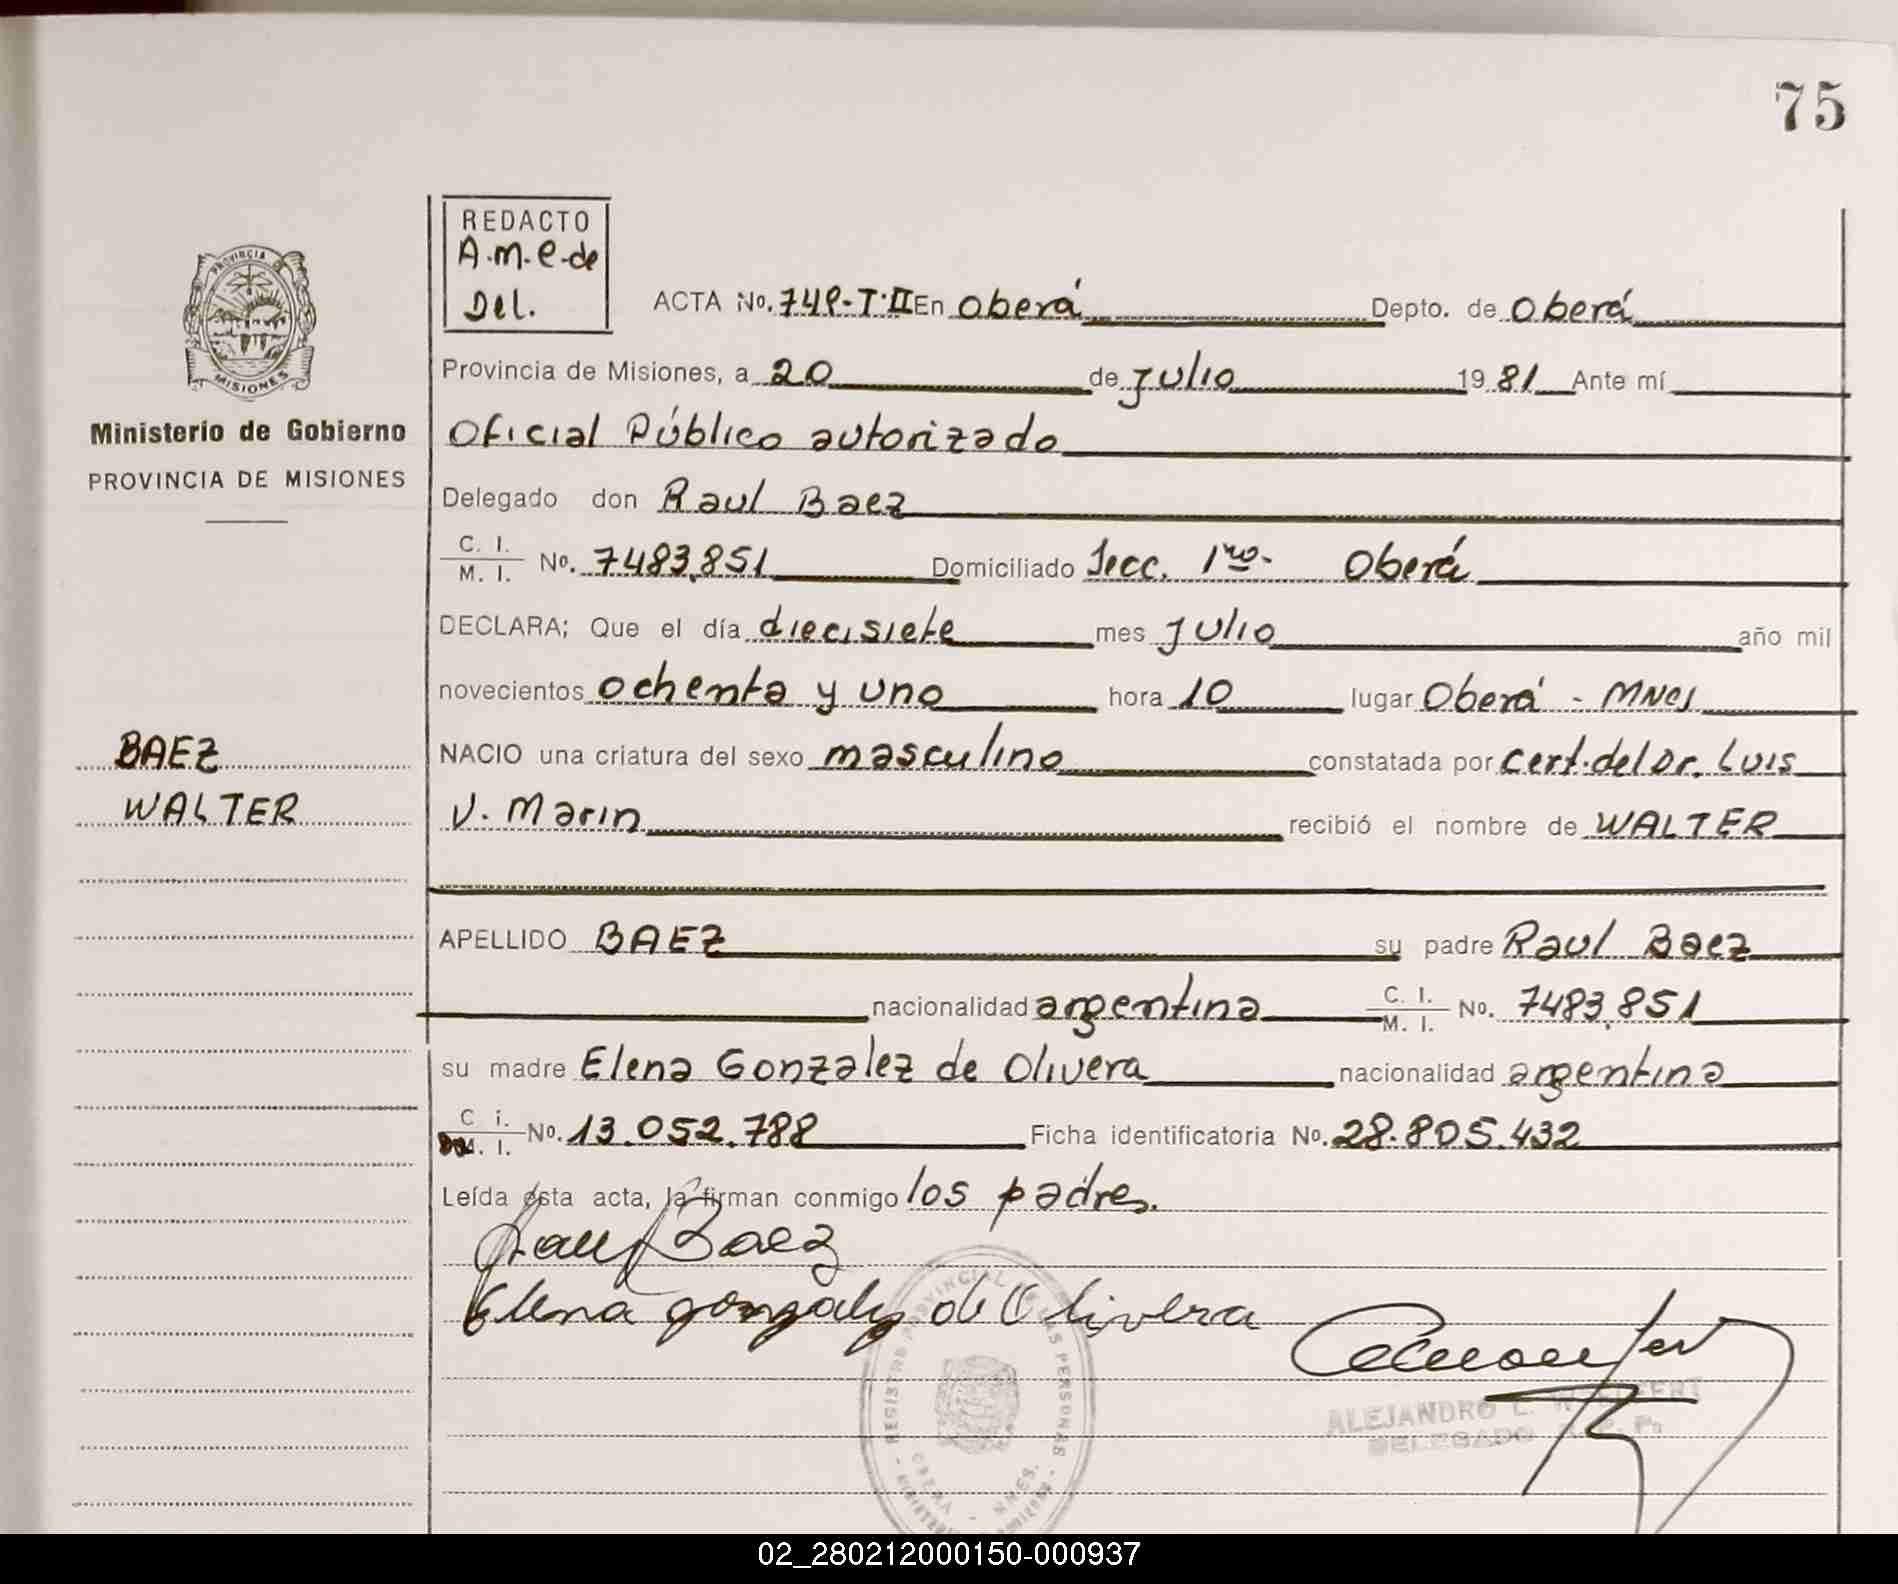 75
REDACTO
A.m.e.de
Del.
ACTA No. 749-T:II En Oberá Depto. de Oberá
Provincia de Misiones, a 20 de julio 19 81 Ante mí
PROVINCIA DE
MISIONES
Ministerio de Gobierno
PROVINCIA DE MISIONES
Oficial Público autorizado
Delegado don Raul Baez
C. I.
M. I. No. 7483,851 Domiciliado Secc. 1ra. Oberá
DECLARA; Que el día diecisiete mes julio año mil
novecientos ochenta y uno hora 10 lugar Oberá - MNes
BAEZ
WALTER
NACIO una criatura del sexo masculino constatada por cert. del Dr. Luis
V. Marin recibió el nombre de WALTER
APELLIDO BAEZ su padre Raul Baez
nacionalidad argentina C. I.
M. I. No. 7483,851
su madre Elena Gonzalez de Olivera nacionalidad argentina
C i.
M. I. No. 13.052.788 Ficha identificatoria No. 28.805.432
Leída ésta acta, la firman conmigo los padres.
Raul Baez
Elena gonzalez de Olivera
REGISTRO PROVINCIAL DE LAS PERSONAS
OBERA - MNES.
ALEJANDRO L.
DELEGADO R. P. P.
02_280212000150-000937